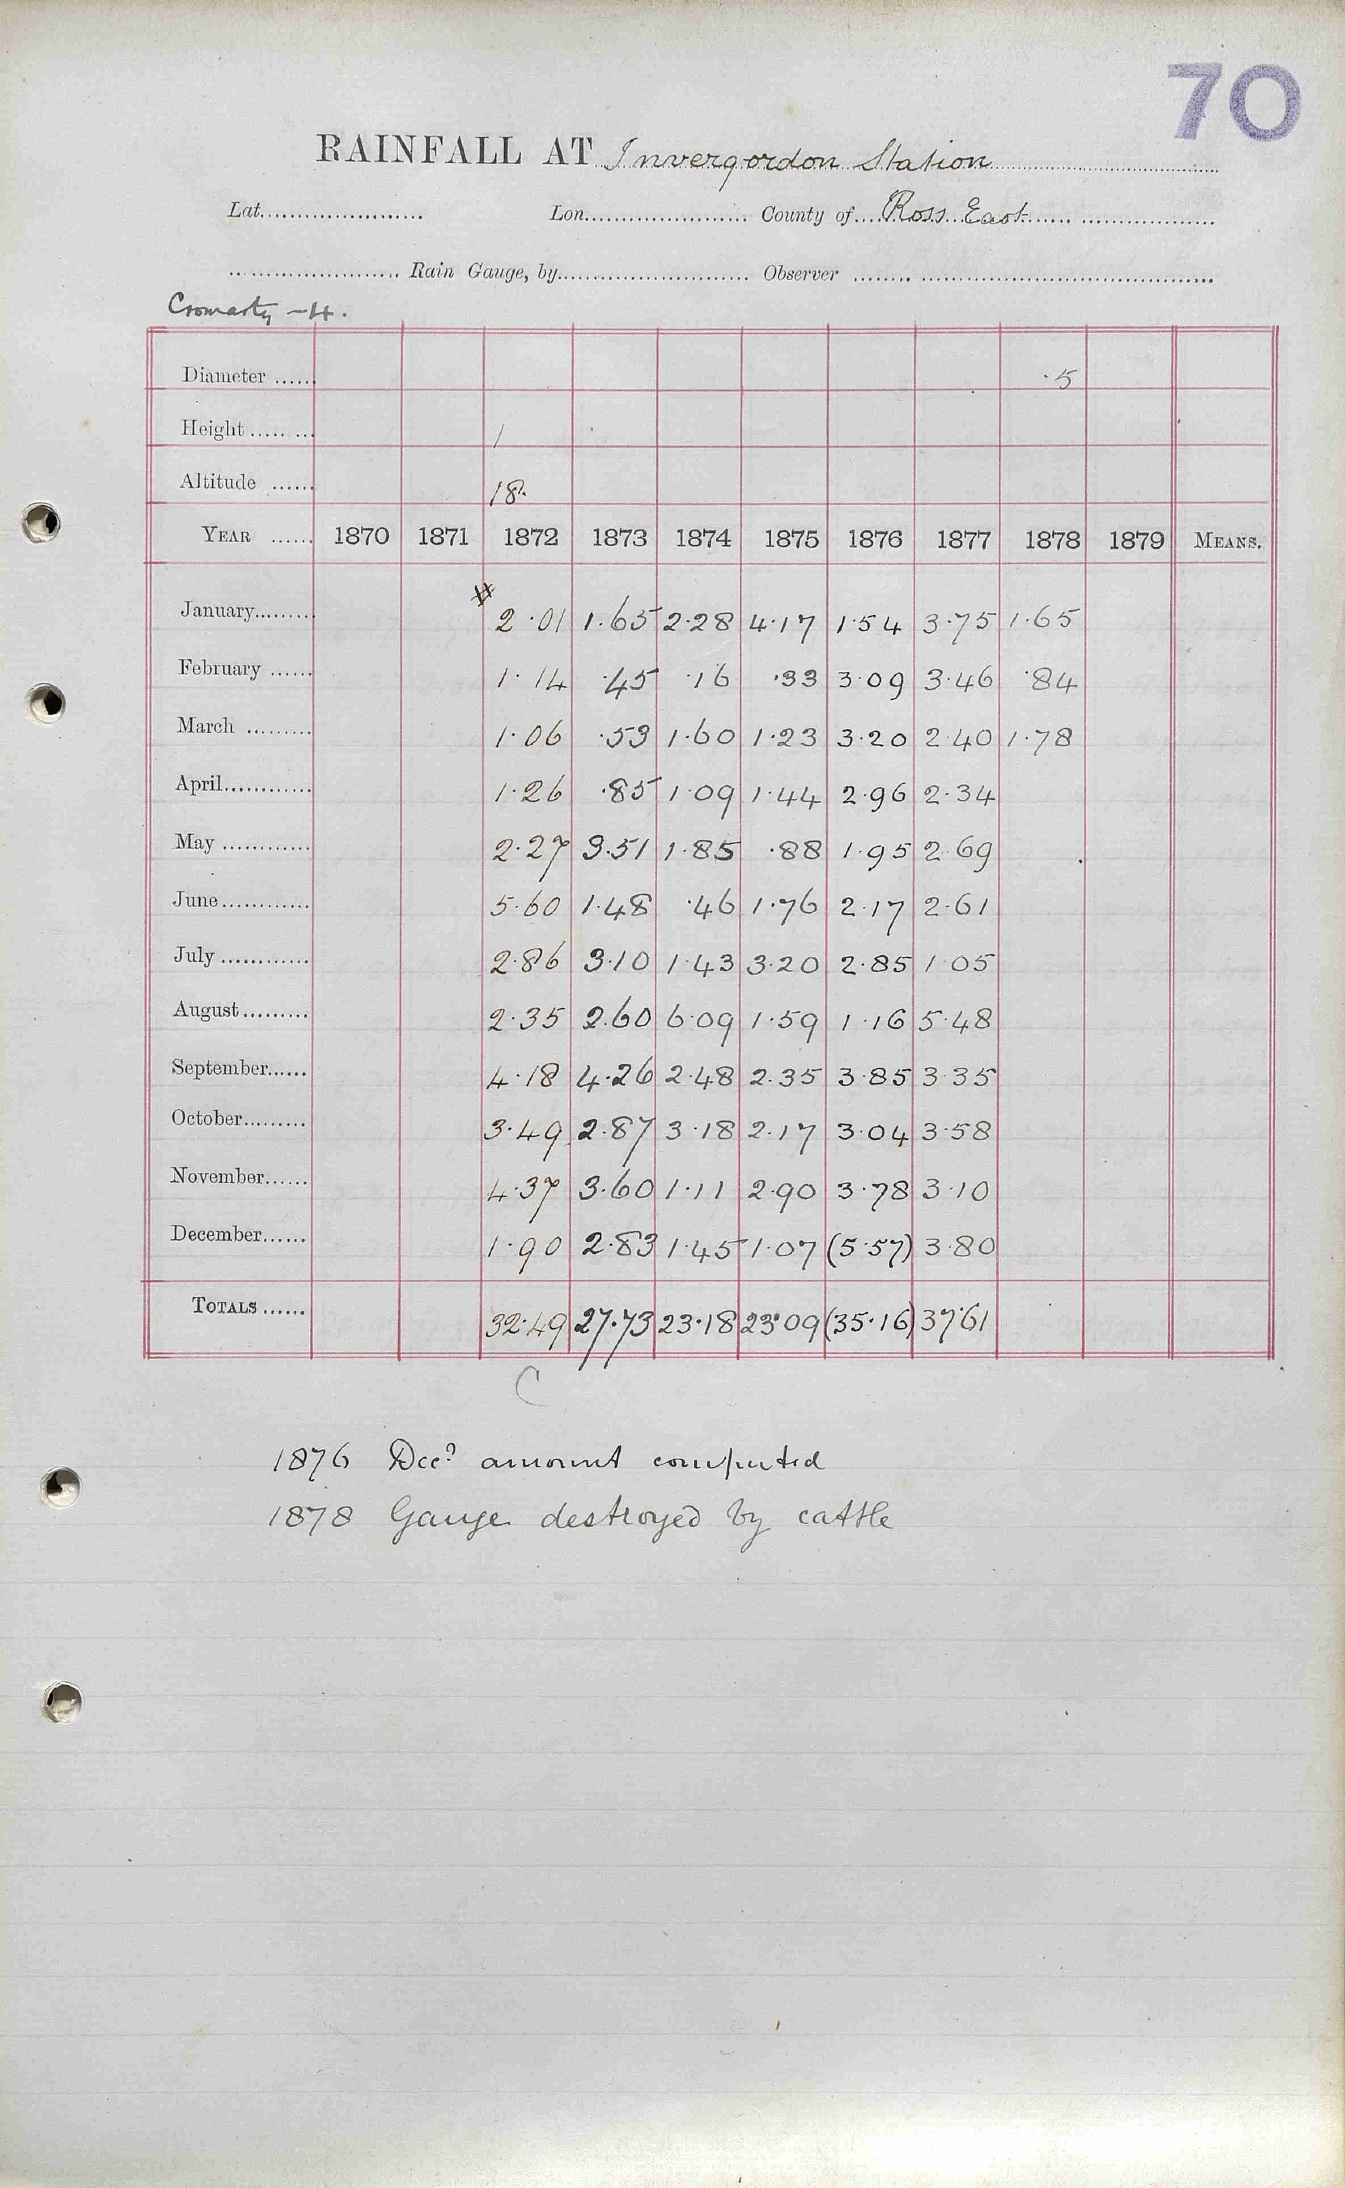 70
RAINFALL AT Invergordon Station
Lat. Lon. County of Ross East
Rain Gauge, by Observer
Cromarty -4.
Diameter ...... ·5
Height ........ 1
Altitude ...... 18·
YEAR ...... 1870 1871 1872 1873 1874 1875 1876 1877 1878 1879 MEANS.
January......... # 2·01 1·65 2·28 4·17 1·54 3·75 1·65
February ...... 1·14 ·45 ·16 ·33 3·09 3·46 ·84
March ......... 1·06 ·53 1·60 1·23 3·20 2·40 1·78
April............ 1·26 ·85 1·09 1·44 2·96 2·34
May ............ 2·27 3·51 1·85 ·88 1·95 2·69
June............ 5·60 1·48 ·46 1·76 2·17 2·61
July ............ 2·86 3·10 1·43 3·20 2·85 1·05
August......... 2·35 2·60 6·09 1·59 1·16 5·48
September...... 4·18 4·26 2·48 2·35 3·85 3·35
October......... 3·49 2·87 3·18 2·17 3·04 3·58
November...... 4·37 3·60 1·11 2·90 3·78 3·10
December...... 1·90 2·83 1·45 1·07 (5·57) 3·80
TOTALS ...... 32·49 27·73 23·18 23·09 (35·16) 37·61
C
1876 Decr amount computed
1878 Gauge destroyed by cattle